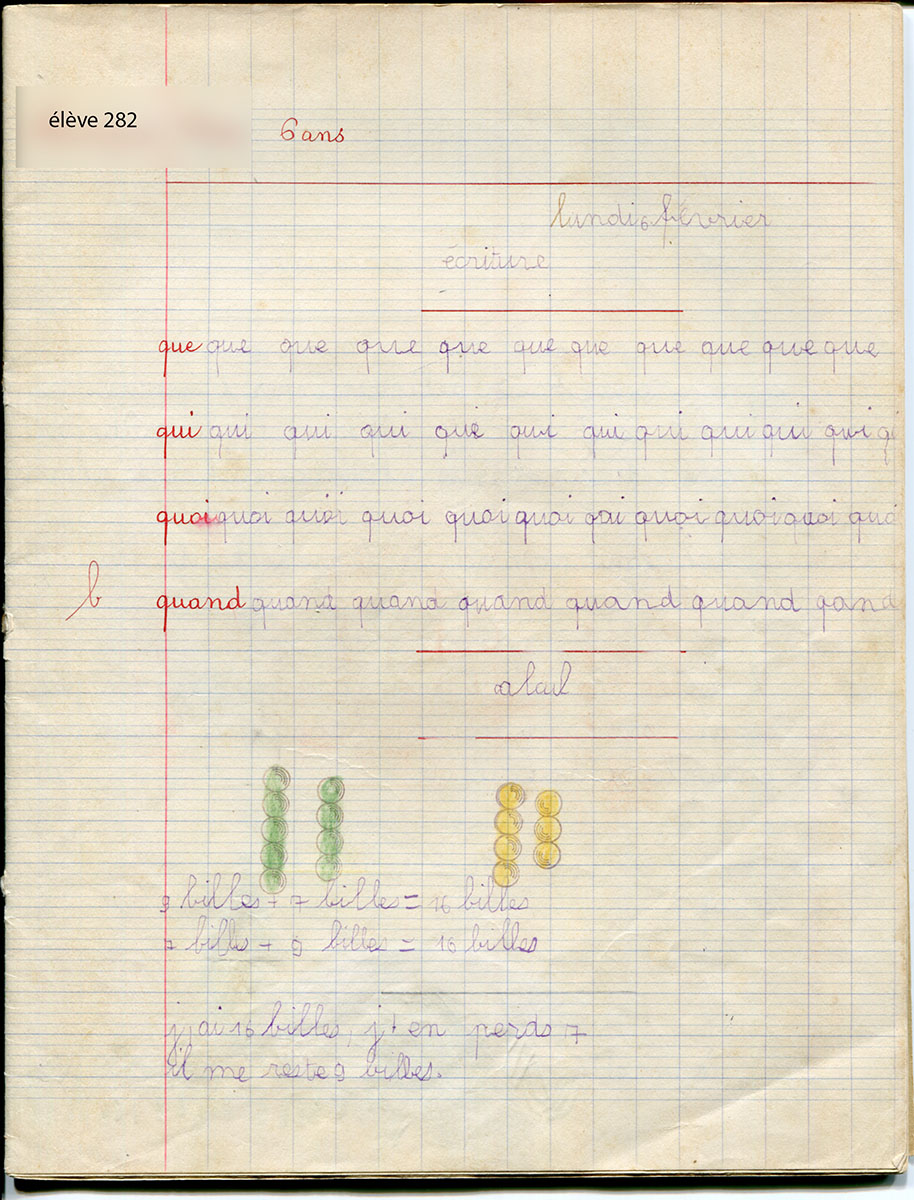 élève 282
6 ans
lundi 6 février
écriture
que que que que que que que que que que que
qui qui qui qui qui qui qui qui qui qui qui q
quoi quoi quoi quoi quoi quoi qoi quoi quoi quoi quo
b quand quand quand quand quand quand qand
calcul
9 billes + 7 billes = 16 billes
7 bills + 9 billes = 16 billes
j'ai 16 billes, j' en perds 7
il me reste 9 billes.